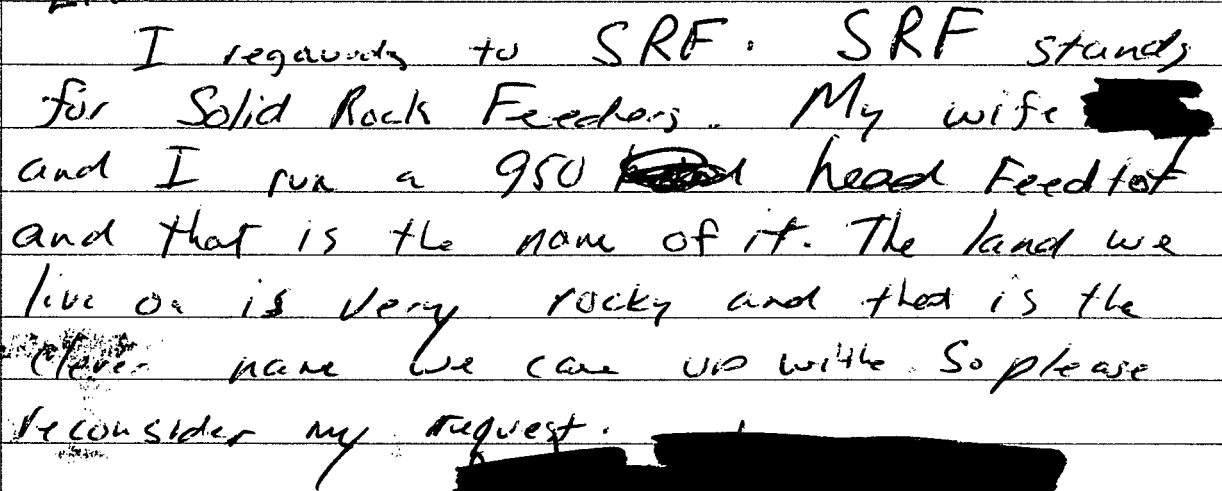 I regaurds to SRF. SRF stands
for Solid Rock Feeders. My wife
and I run a 950 head Feedlot
and that is the name of it. The land we
live on is very rocky and that is the
clever name we came up withe. So please
reconsider my request.